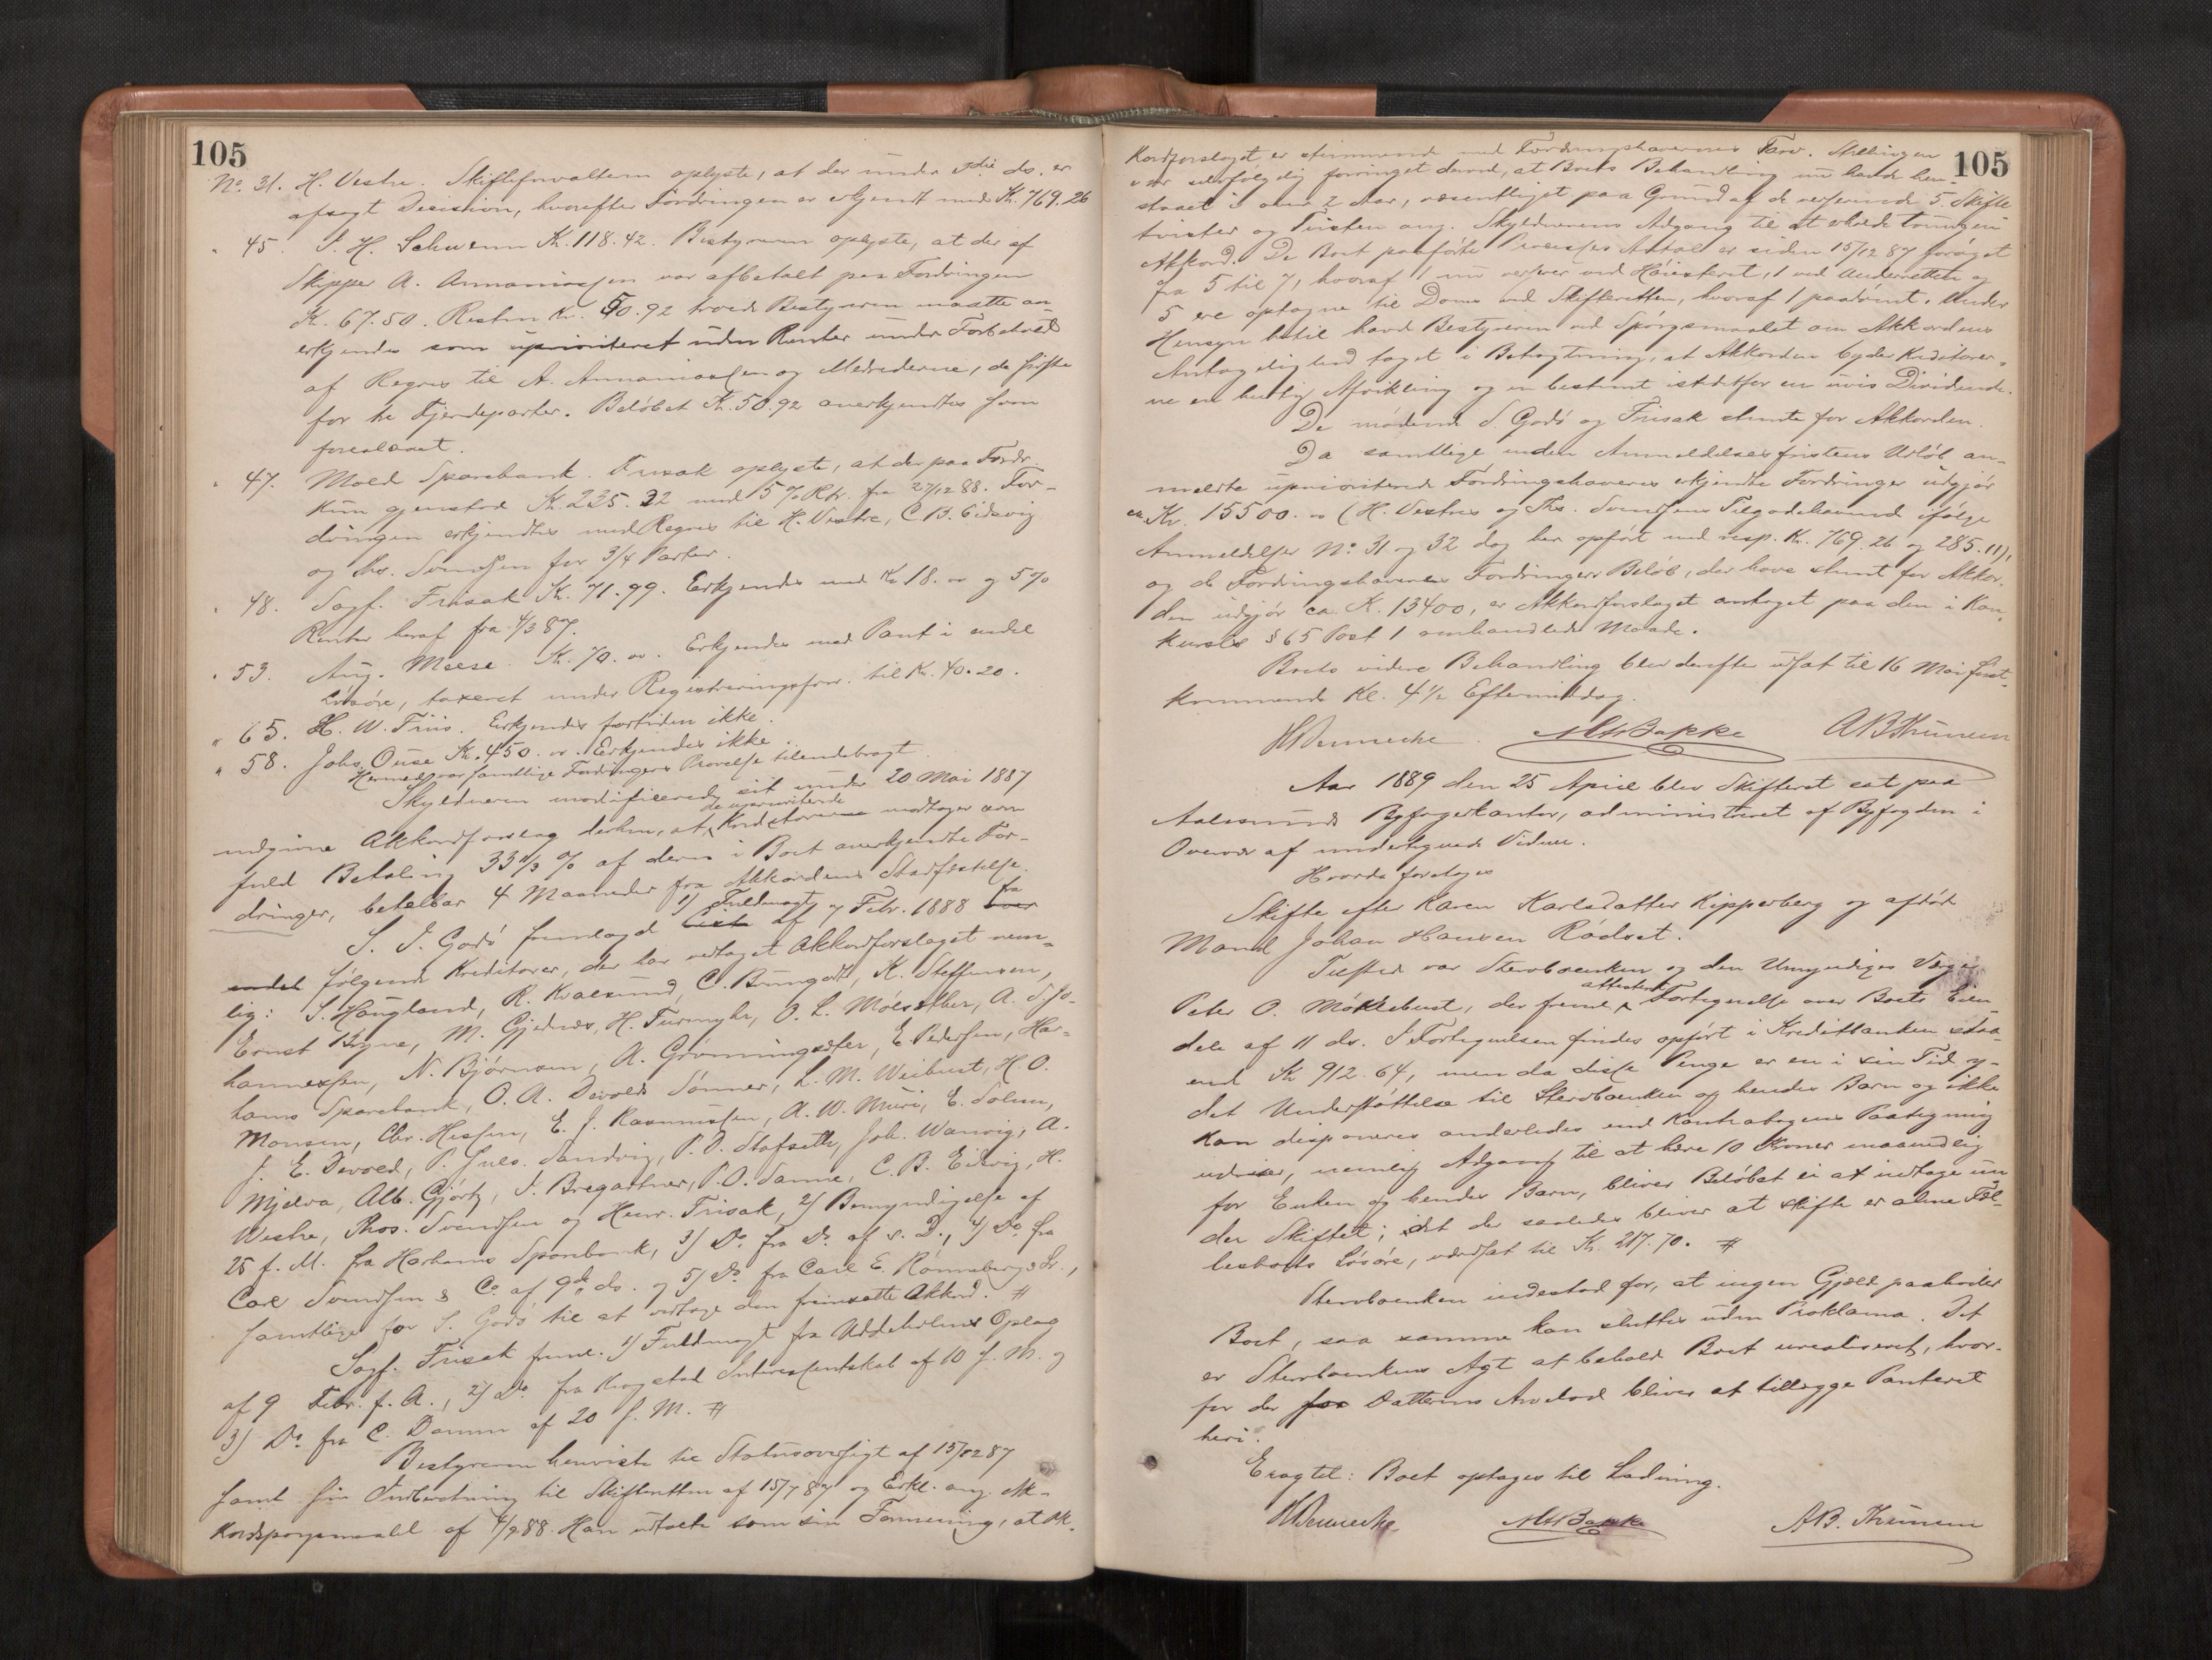 105
No 31. H. Vestre. Skifteforvalteren oplyste, at der under 3die ds. er
afsagt Decision, hvorefter Fordringen er erkjendt med Kr. 769.26
" 45. J. H. Schwenn Kr. 118.42. Bestyreren oplyste, at der af
Skipper A. Annaniassen var afbetalt paa Fordringen
Kr. 67.50. Resten Kr. 50.92 troede Bestyreren maatte an
erkjendes som uprioriteret uden Renter under Forbehold
af Regres til A. Annaniassen og Medrederne, de sidste
for tre Fjerdeparter. Beløbet Kr. 50.92 anerkjendtes som
foreslaaet.
" 47. Mold Sparebank. Frisak oplyste, at der paa Fordr.
kun gjenstod Kr. 235.32 med 5% Rtr. fra 27/12 88. For-
dringen erkjendtes med Regres til H. Vestre, C. B. Eidsvig
og Ths. Svendsen for 3/4 Parter.
" 48. Sagf. Frisak Kr. 71.99. Erkjendes med Kr. 18. oo og 5%
Renter heraf fra 4/3 87.
" 53. Aug. Meese. Kr. 70. oo. Erkjendes med Pant i endel
Løsøre, taxeret under Registreringsforr. til Kr. 40.20.
" 65. H. W. Friis. Erkjendes fortiden ikke.
" 58. Johs. Ouse Kr. 450. oo. Erkjendes ikke.
Hermed var samtlige Fordringers Prøvelse tilendebragt.
Skyldneren modificerede sit under 20 Mai 1887
de uprioriterede
indgivne Akkordforslag derhen, at Kreditorerne modtager som
fuld Betaling 33 1/3 % af deres i Boet anerkjendte For-
dringer, betalbar 4 Maaneder fra Akkordens Stadfæstelse.
1) Fuldmagt fra
S. J. Godø fremlagde Liste af 7 Febr. 1888 over
endel følgende Kreditorer, der har vedtaget Akkordforslaget nem-
lig: S. Haugland, R. Kvalsund, C. Bungodt, K. Steffensen,
Ernst Bryne, M. Gjednes, H. Furmyhr, O. L. Molsæther, A. Jo-
hannessen, N. Bjørnsen, A. Grønningsæter, E. Pedersen, Har-
hams Sparebank, O. A. Devolds Sønner, L. M. Weibust, H. O.
Monsen, Chr. Hessen, E. J. Rasmussen, A. W. Muri, E. Solem,
J. E. Devold, P. Juls. Sandvig, P. O. Stafseth, Joh. Wanvig, A.
Mjelva, Alb. Gjørtz, J. Bregartner, P. O. Sanne, C. B. Eidsvig, H.
Westre, Thos. Svendsen og Henr. Frisak, 2) Bemyndigelse af
25 f. M. fra Harhams Sparebank, 3) Do fra Do af s. D., 4) Do fra
Carl Svendsen & Co af 9de ds. og 5) Do fra Carl E. Rønnebergs Sr.,
samtlige for S. Godø til at vedtage den fremsatte Akkord. #
Sagf. Frisak freml. 1) Fuldmagt fra Uddeholms Oplag
af 9 Febr. f. A., 2) Do fra Krogstad Interessentskab af 10 f. M. og
3) Do fra C. Damm af 20 f. M. #
Bestyreren henviste til Statusoversigt af 15/12 87
samt sin Indberetning til Skifteretten af 15/7 87 og Erkl. ang. Ak-
kordspørgsmaalet af 4/9 88. Han udtalte som sin Formening, at Ak-
105
kordforslaget er stemmende med Fordringshavernes Tarv. Stillingen
er selvfølgelig forringet derved, at Boets Behandling nu havde hen-
staaet i over 2 Aar, væsentligst paa Grund af de verserende 5 Skifte
tvister og Tvisten ang. Skyldnerens Adgang til at erholde Tvungen
Akkord. De Boet paaførte Processers Antal er siden 15/12 87 forøget
fra 5 til 7, hvoraf 1 nu verserer ved Høiesteret, 1 ved Underretten og
5 ere optagne til Doms ved Skifteretten, hvoraf 1 paadømt. Under
Hensyn hertil havde Bestyreren ved Spørgsmaalet om Akkordens
Antagelighed taget i Betragtning, at Akkorden byder Kreditorer-
ne en hurtig Afvikling og en bestemt istedetfor en uvis Dividende.
De mødende S. Godø og Frisak stemte for Akkorden.
Da samtlige inden Anmeldelsesfristens Udløb an-
meldte uprioriterede Fordringshaveres erkjendte Fordringer udgjør
ca. Kr. 15500. oo (H. Vestres og Ths. Svendsens Tilgodehavende ifølge
Anmeldelser No 31 og 32 dog her opført med resp. Kr. 769.26 og 285.11),
og de Fordringshaveres Fordringers Beløb, der have stemt for Akkor-
den udgjør ca. K. 13400, er Akkordforslaget antaget paa den i Kon-
kurslov § 65 Post 1 omhandlede Maade.
Boets videre Behandling blev derefter udsat til 16 Mai først-
kommende Kl. 4 1/2 Eftermiddag.
A B Thunem
Aar 1889 den 25 April blev Skifteret sat paa
Aalesunds Byfogedkontor, administreret af Byfogden i
Overvær af undertegnede Vidner.
Hvorda foretoges
Skifte efter Karen Karlsdatter Kipperberg og afdøde
Mand Johan Hansen Rødset.
Tilstede var Stervboenken og den Umyndiges Værge
attesteret
Peter O. Møklebust, der freml. Fortegnelse over Boets Eien-
dele af 11 ds. I Fortegnelsen findes opført i Kreditbanken staa-
ende Kr 912.64, men da disse Penge er en i sin Tid y-
det Understøttelse til Stervboenken og hendes Barn og ikke
kan disponeres anderledes end Kontrabogens Paategning
udviser, nemlig Adgang til at hæve 10 Kroner maanedlig
for Enken og hendes Barn, bliver Beløbet ei at indtage un-
der Skiftet; idet der saaledes bliver at skifte er alene Fæl-
lesboets Løsøre, værdsat til Kr. 217.70. #
Stervboenken indestod for, at ingen Gjæld paahviler
Boet, saa samme kan sluttes uden Proklama. Det
er Stervboenkens Agt at beholde Boet urealiseret, hvor-
for der for Datterens Arvelod bliver at tillægge Panteret
heri.
Eragtet: Boet optages til Ladning.
A.B. Thunem